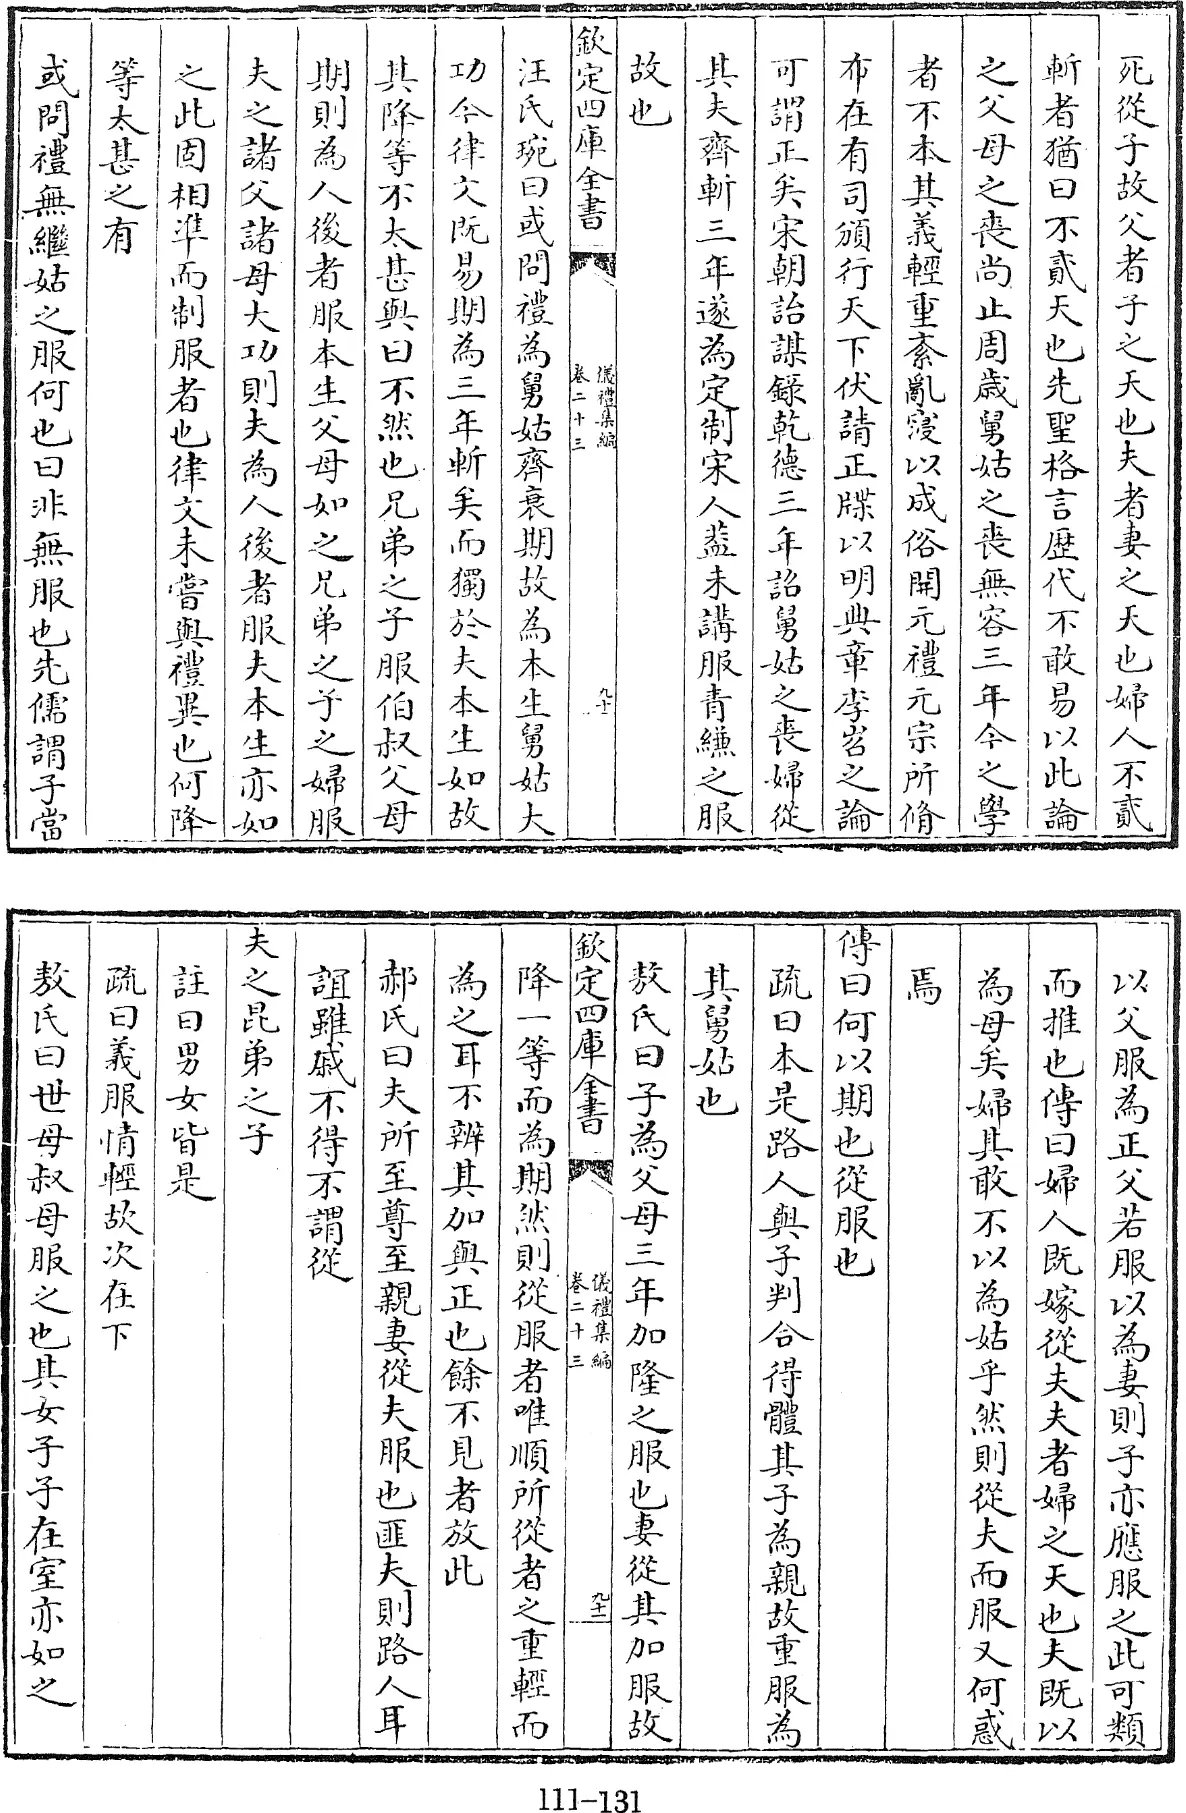 死從子故父者子之天也夫者妻之天也婦人不貳
斬者猶曰不貳天也先聖格言歴代不敢易以此論
之父母之喪尚止周歳舅姑之喪無容三年今之學
者不本其義輕重紊亂寖以成俗開元禮元宗所脩
布在有司頒行天下伏請正牒以明典章李岧之論
可謂正矣宋朝詒謀錄乾德三年詔舅姑之喪婦從
其夫齊斬三年遂為定制宋人葢未講服青縑之服
故也
欽定四庫全書
儀禮集編
卷二十三
九十
汪氏琬曰或問禮為舅姑齊衰期故為本生舅姑大
功今律文既易期為三年斬矣而獨於夫本生如故
其降等不太甚與曰不然也兄弟之子服伯叔父母
期則為人後者服本生父母如之兄弟之子之婦服
夫之諸父諸母大功則夫為人後者服夫本生亦如
之此固相凖而制服者也律文未嘗與禮異也何降
等太甚之有
或問禮無繼姑之服何也曰非無服也先儒謂子當
以父服為正父若服以為妻則子亦應服之此可類
而推也傳曰婦人既嫁從夫夫者婦之天也夫既以
為母矣婦其敢不以為姑乎然則從夫而服又何惑
焉
傳曰何以期也從服也
疏曰本是路人與子判合得體其子為親故重服為
其舅姑也
敖氏曰子為父母三年加隆之服也妻從其加服故
欽定四庫全書
儀禮集編
卷二十三
九十一
降一等而為期然則從服者唯順所從者之重輕而
為之耳不辨其加與正也餘不見者放此
郝氏曰夫所至尊至親妻從夫服也匪夫則路人耳
誼雖戚不得不謂從
夫之昆弟之子
註曰男女皆是
疏曰義服情輕故次在下
敖氏曰世母叔母服之也其女子子在室亦如之
111-131